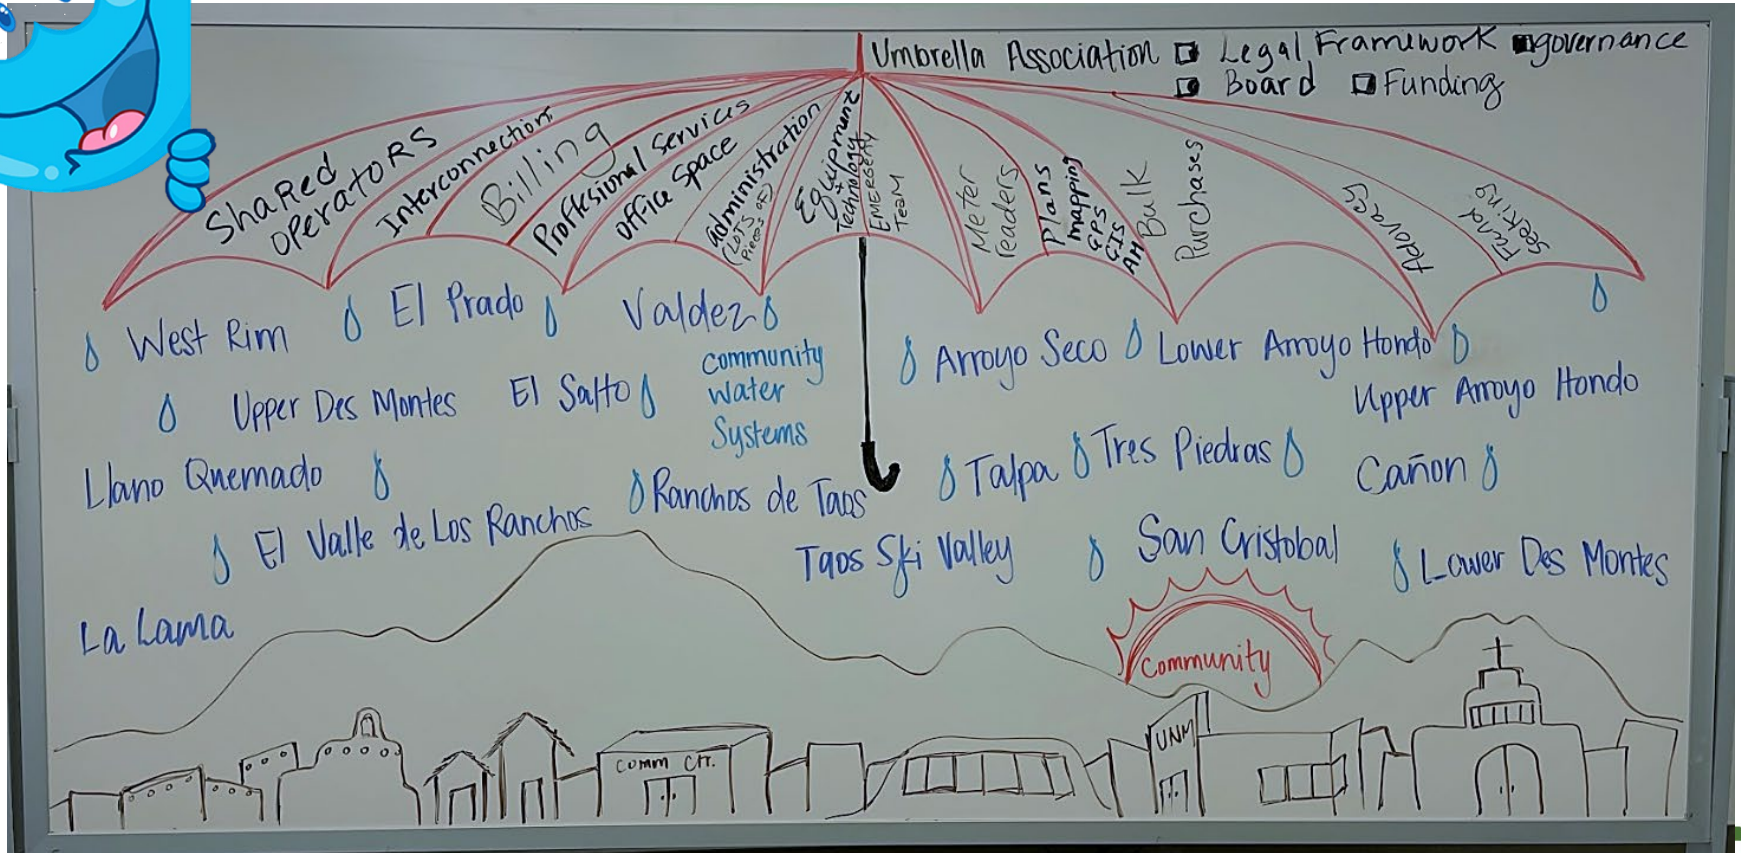 Umbrella Association □ Legal Framework □ governance
□ Board □ Funding
Shared
operators
Interconnection
Billing
Proffesional Services
Office Space
administration
(LOTS OF)
Pieces
Equipment
+
Technology
EMERGENTY
TEAM
Meter
readers
Plans
mapping
GPS
GIS
AM
Bulk
Purchases
Adovacy
Fund
seeking
West Rim
El Prado
Valdez
Arroyo Seco
Lower Arroyo Hondo
Upper Des Montes
El Salto
community
water
Systems
Upper Arroyo Hondo
Llano Quemado
Ranchos de Taos
Talpa
Tres Piedras
Cañon
El Valle de Los Ranchos
Taos Ski Valley
San Cristobal
Lower Des Montes
La Lama
Community
COMM CTT.
UNM